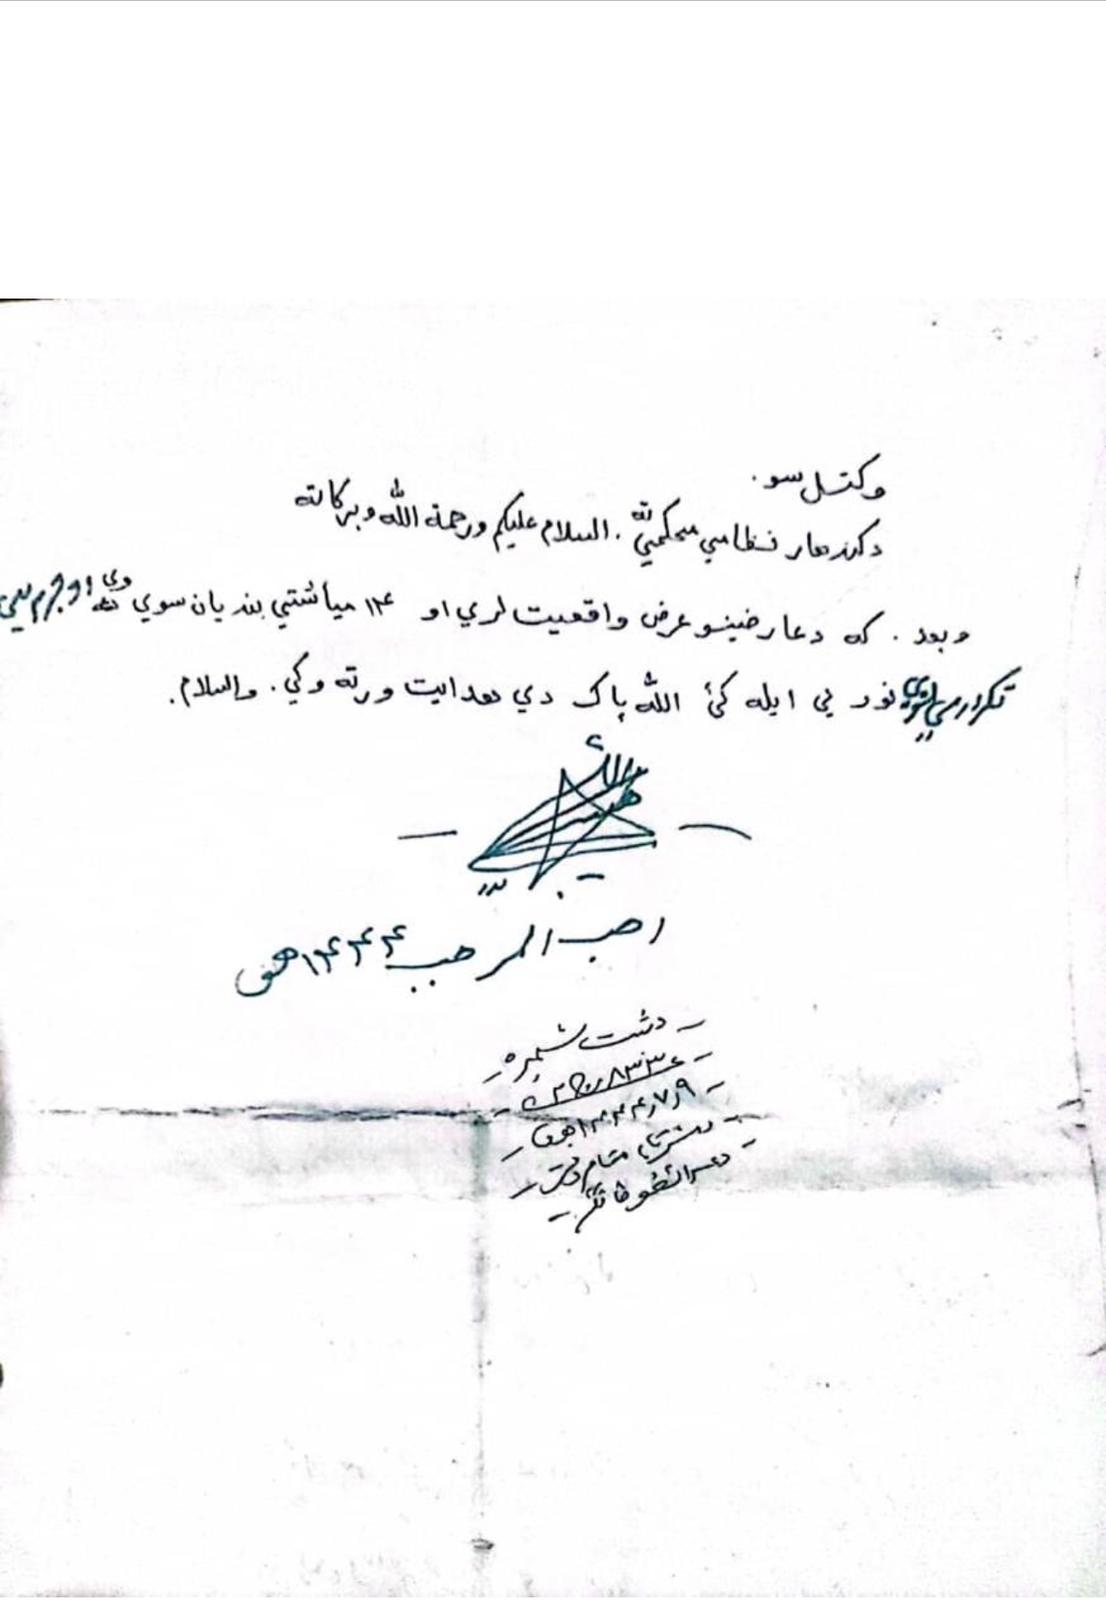 وکتل سو.
دکندهار نظامي محکمې ته . السلام عليکم ورحمة الله وبرکاته
وبعد . که دعارضينو عرض واقعيت لري او ۱۴ مياشتي بنديان سوي وي او جرم يې
تکراري نور يې ايله کئ الله پاک دي هدايت ورته وکي . والسلام.
رجب المرجب ۱۴۴۴ هـ ق
دثبت شمېره
۱۴۴۴٫۷٫۹ هـ ق
مقام دفتر
دعرائضو څانګه